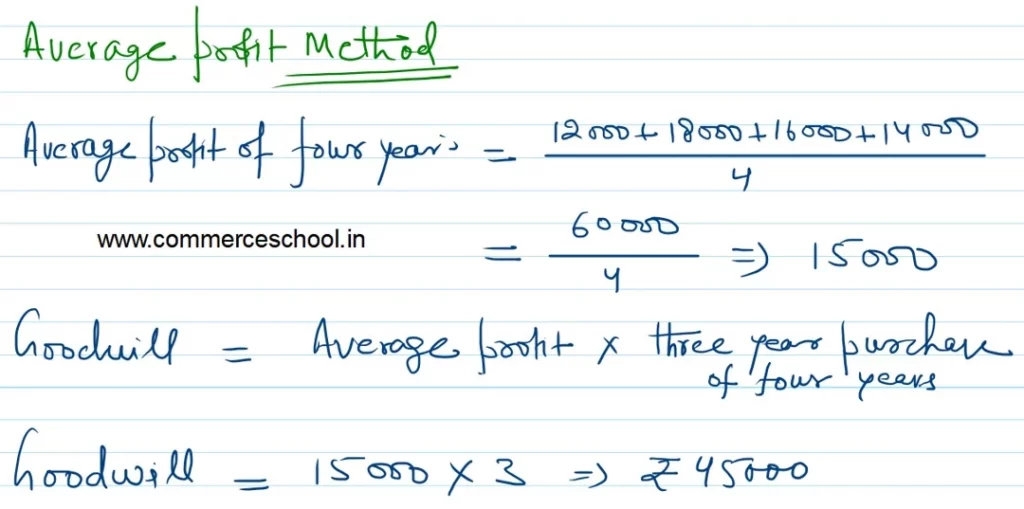 Average profit Method
Average profit of four years = 12000 + 18000 + 16000 + 14000 / 4
www.commerceschool.in
= 60000 / 4 => 15000
Goodwill = Average profit × three year purchase
of four years
Goodwill = 15000 × 3 => ₹45000